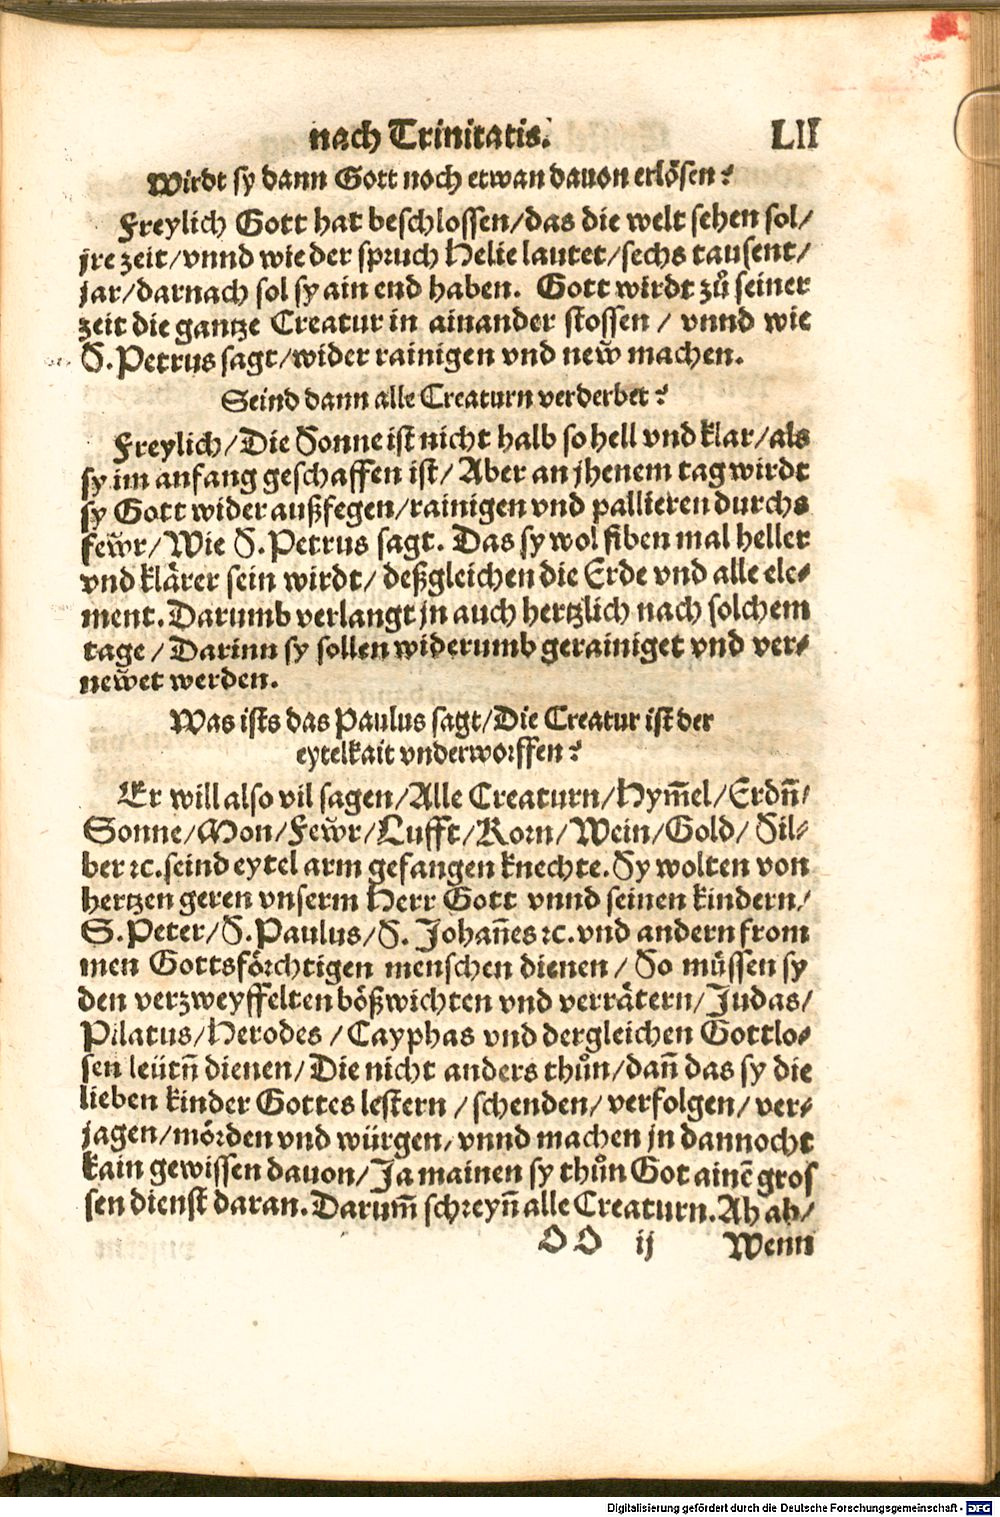 nach Trinitatis. LII
Wirdt sy dann Gott noch etwan dauon erlösen?
Freylich Gott hat beschlossen/das die welt sehen sol/
jre zeit/vnnd wie der spruch Helie lautet/sechs tausent/
jar/darnach sol sy ain end haben. Gott wirdt zů seiner
zeit die gantze Creatur in ainander stossen / vnnd wie
S. Petrus sagt/wider rainigen vnd new machen.
Seind dann alle Creaturn verderbet?
Freylich/Die Sonne ist nicht halb so hell vnd klar/als
sy im anfang geschaffen ist/ Aber an jhenem tag wirdt
sy Gott wider außfegen/rainigen vnd pallieren durchs
fewr/Wie S. Petrus sagt. Das sy wol siben mal heller
vnd klärer sein wirdt/ deßgleichen die Erde vnd alle ele-
ment. Darumb verlangt jn auch hertzlich nach solchem
tage / Darinn sy sollen widerumb gerainiget vnd ver-
newet werden.
Was ists das Paulus sagt/Die Creatur ist der
eytelkait vnderworffen?
Er will also vil sagen/Alle Creaturn/Hym̃el/Erdñ/
Sonne/Mon/Fewr/Lufft/Korn/Wein/Gold/ Sil-
ber ꝛc. seind eytel arm gefangen knechte. Sy wolten von
hertzen geren vnserm Herr Gott vnnd seinen kindern/
S. Peter/S. Paulus/S. Johañes ꝛc. vnd andern from
men Gottsförchtigen menschen dienen / So müssen sy
den verzweyffelten bößwichten vnd verrätern/Judas/
Pilatus/Herodes /Cayphas vnd dergleichen Gottlo-
sen leütñ dienen/ Die nicht anders thůn/dañ das sy die
lieben kinder Gottes lestern /schenden/ verfolgen/ ver-
jagen/mörden vnd würgen, vnnd machen jn dannocht
kain gewissen dauon/Ja mainen sy thůn Got ainẽ gros
sen dienst daran. Darum̃ schreyñ alle Creaturn. Ah ah/
OO ij Wenn
Digitalisierung gefördert durch die Deutsche Forschungsgemeinschaft - DFG